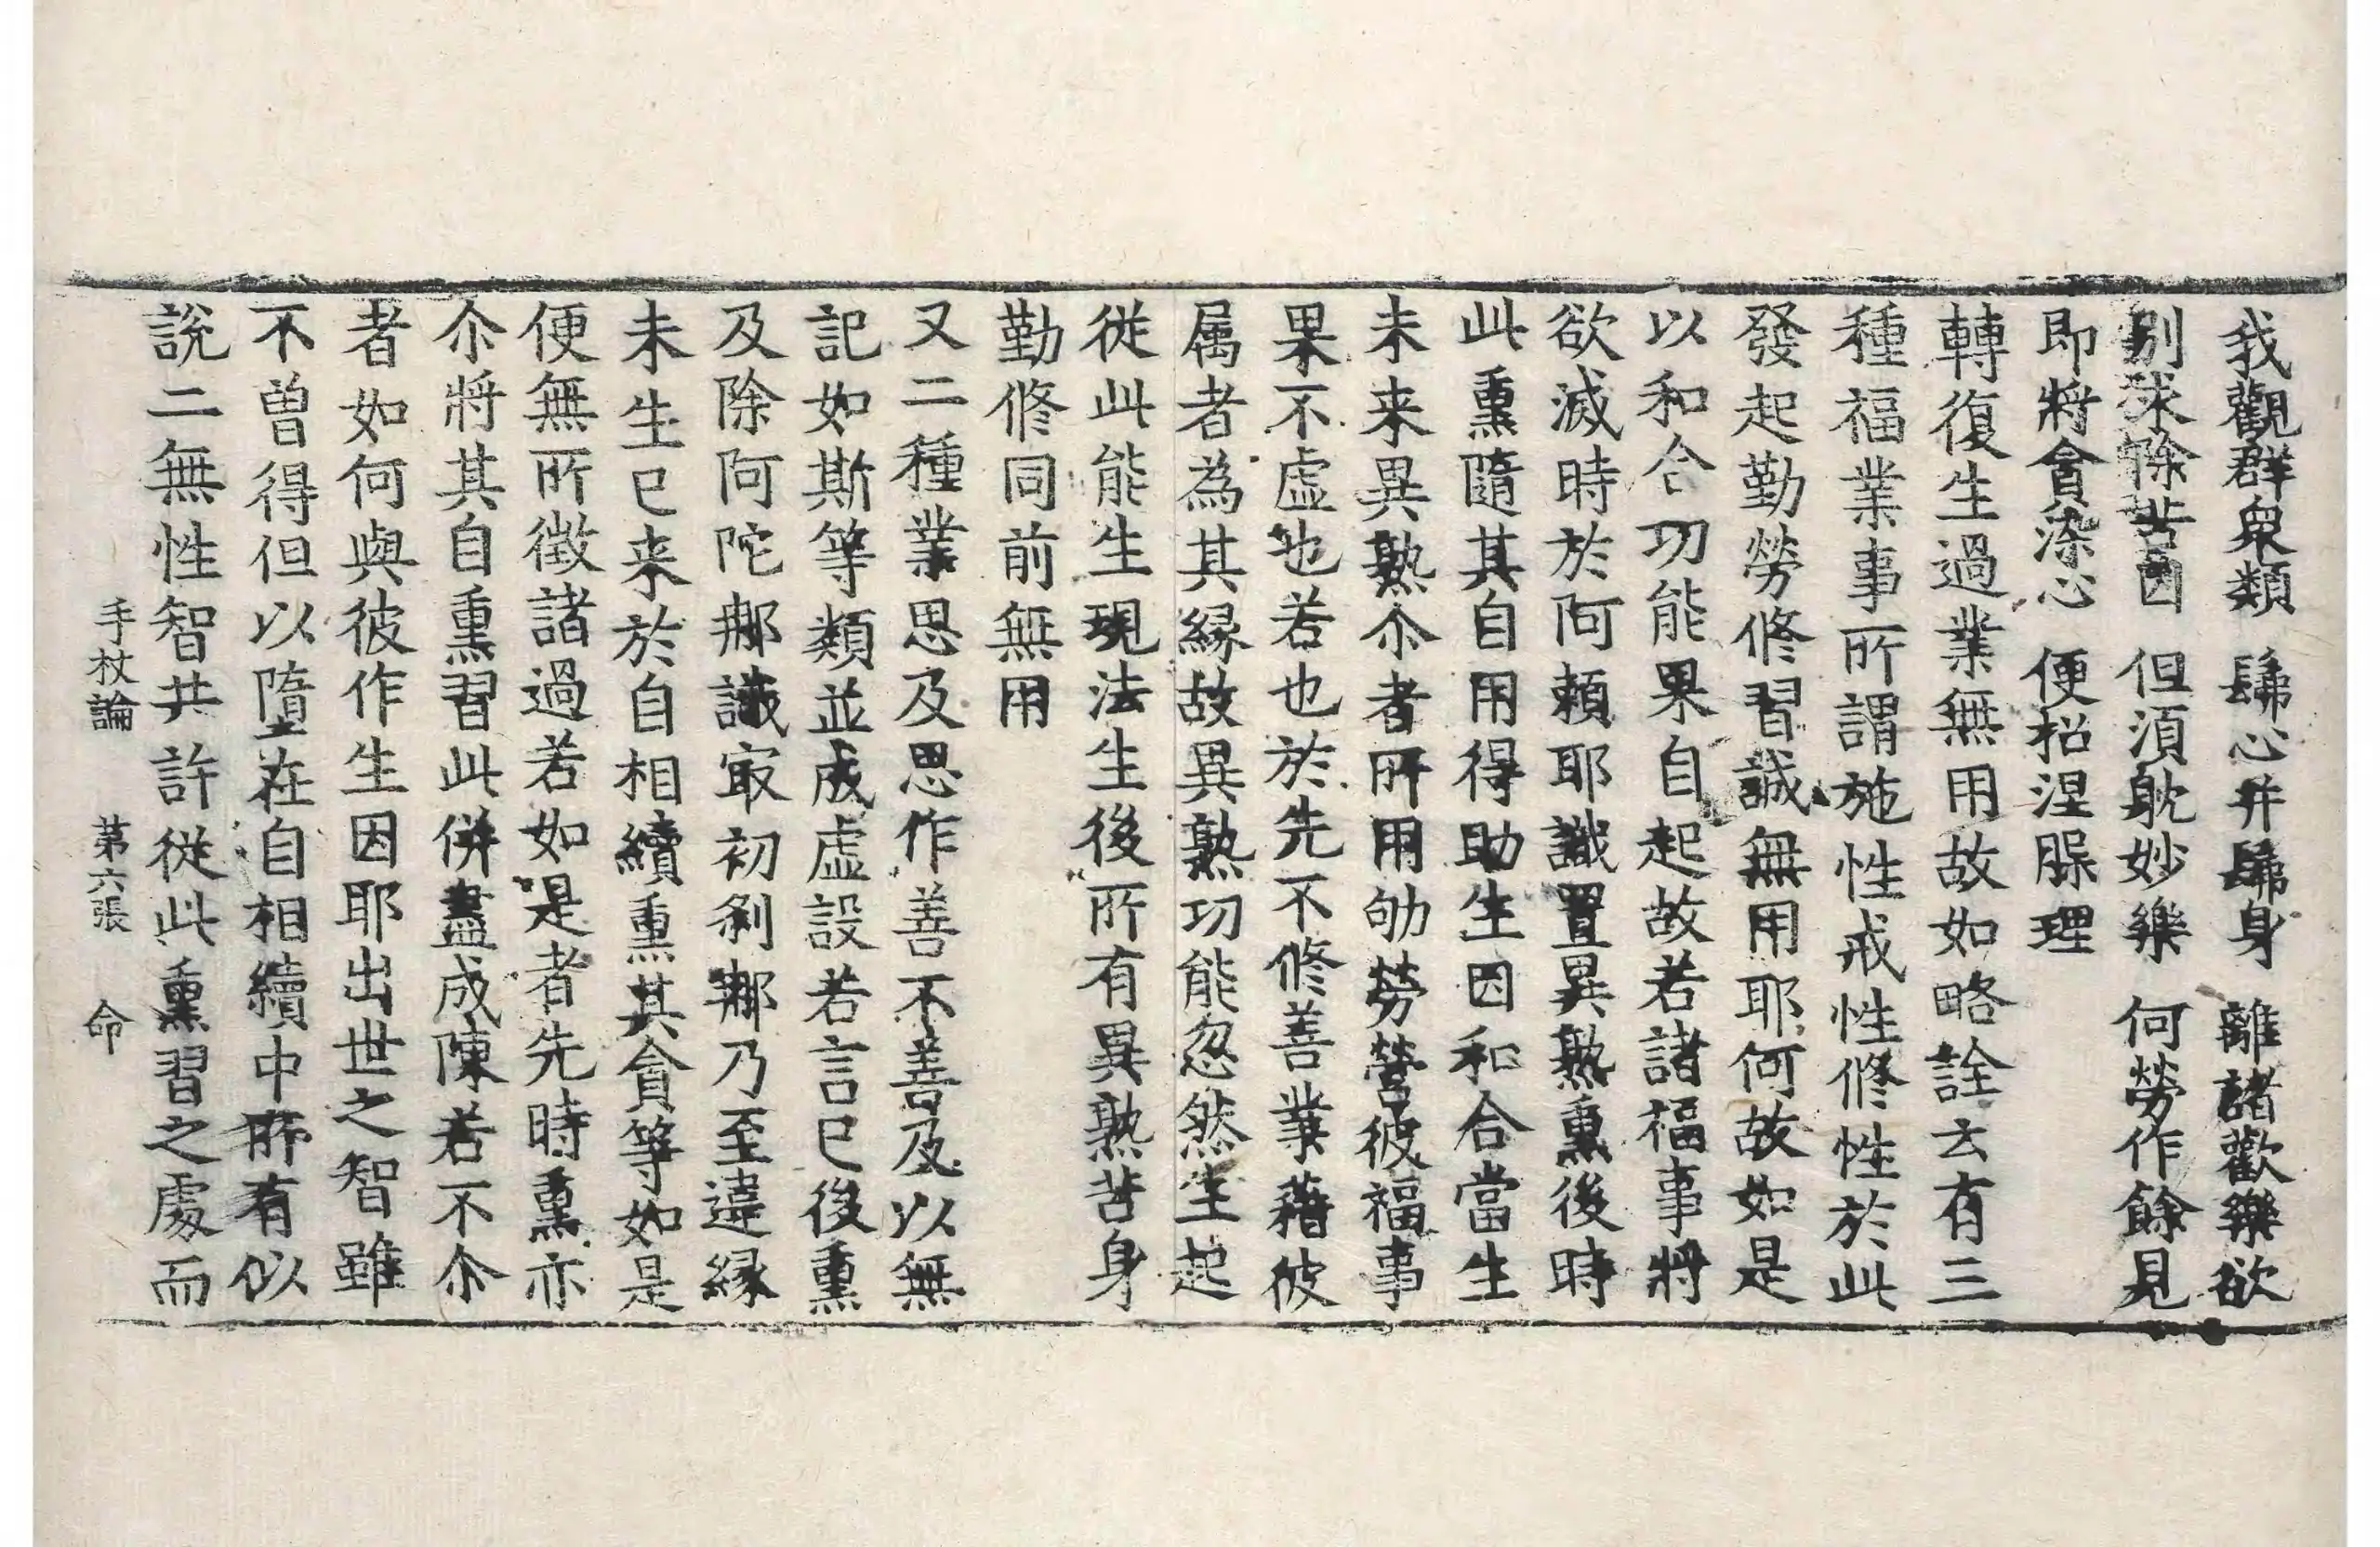 我觀群衆類 歸心并歸身 離諸歡樂欲
別求除苦因 但湏躭妙樂 何勞作餘見
即將會染心 便招涅脲理
轉復生過業無用故如略詮云有三
種福業事所謂施性戒性修性於此
發起勤勞修習誠無用耶何故如是
以和合功能果自起故若諸福事將
欲滅時於阿頼耶識置異熟熏後時
此熏隨其自用得助生因和合當生
未来異熟尒者所用劬勞營彼福事
果不虛也若也於先不修善業藉彼
属者為其縁故異熟功能忽然生起
從此能生現法生後所有異熟苦身
勤修同前無用
又二種業思及思作善不善及以無
記如斯等類並成虛設若言已後熏
及除阿陀那識㝡初刹那乃至違縁
未生已来於自相續熏其貪等如是
便無所徵諸過若如是者先時熏亦
尒將其自熏習此併盡成陳若不尒
者如何與彼作生因耶出世之智雖
不曽得但以墮在自相續中所有似
說二無性智共許從此熏習之處而
手杖論 第六張 命